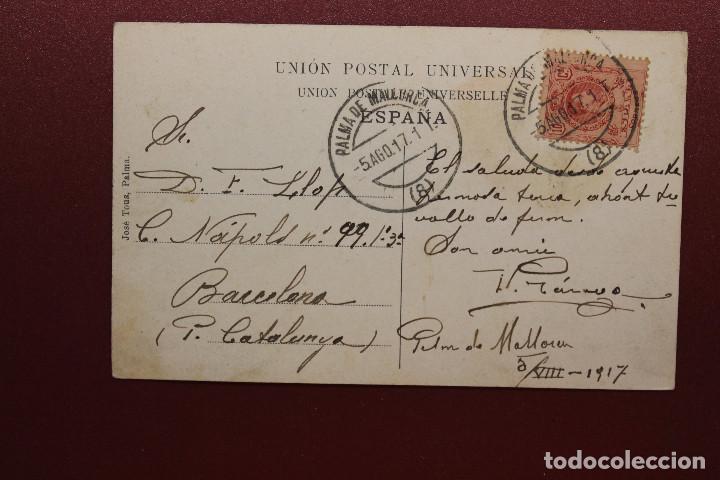 UNIÓN POSTAL UNIVERSAL
UNION POSTALE UNIVERSELLE
ESPAÑA
PALMA DE MALLORCA
-5.AGO.17.1 T.
(8)
PALMA DE MALLORCA
-5.AGO.17.1
(8)
José Tous, Palma.
Sr.
D. F. Llop
C. Nápols nº 99. 1º 3ª
Barcelona
(P. Catalunya)
El saluda desde aquesta
hermosa terra, ahont
Son amic
Palma de Mallorca
5/VIII-1917
todocoleccion.net